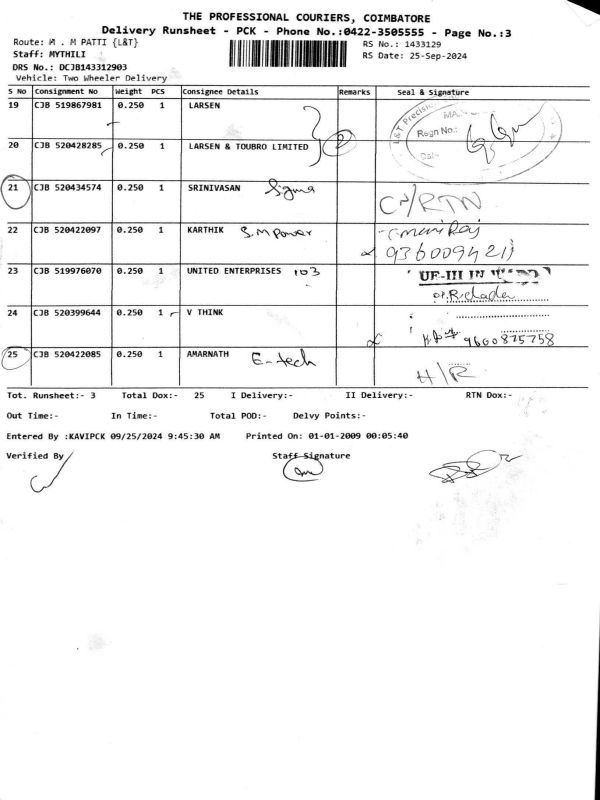 THE PROFESSIONAL COURIERS, COIMBATORE
Delivery Runsheet - PCK - Phone No.:0422-3505555 - Page No.:3
Route: M . M PATTI {L&T}
RS No.: 1433129
Staff: MYTHILI
RS Date: 25-Sep-2024
DRS No.: DCJB143312903
Vehicle: Two Wheeler Delivery
S No Consignment No Weight PCS Consignee Details Remarks Seal & Signature
19 CJB 519867981 0.250 1 LARSEN
L&T Precision
Regn No.:
Date
20 CJB 520428285 0.250 1 LARSEN & TOUBRO LIMITED 2
21 CJB 520434574 0.250 1 SRINIVASAN Sigma
/RTN
22 CJB 520422097 0.250 1 KARTHIK S.M Power
23 CJB 519976070 0.250 1 UNITED ENTERPRISES 103
UF-III IN
24 CJB 520399644 0.250 1 V THINK
9600875758
25 CJB 520422085 0.250 1 AMARNATH E-tech
H/R
Tot. Runsheet:- 3 Total Dox:- 25 I Delivery:- II Delivery:- RTN Dox:-
Out Time:- In Time:- Total POD:- Delvy Points:-
Entered By :KAVIPCK 09/25/2024 9:45:30 AM Printed On: 01-01-2009 00:05:40
Verified By Staff Signature